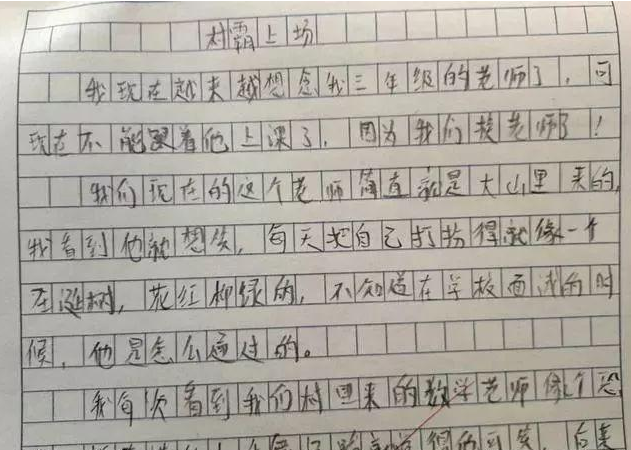 村霸上场
我现在越来越想念我三年级的老师了,可
现在不能跟着他上课了,因为我们换老师了!
我们现在的这个老师简直就是大山里来的,
我看到他就想笑,每天把自己打扮得就像一个
圣诞树,花红柳绿的,不知道在学校面试的时
候,他是怎么通过的。
我每次看到我们村里来的数学老师像个恐
得的可笑,后来